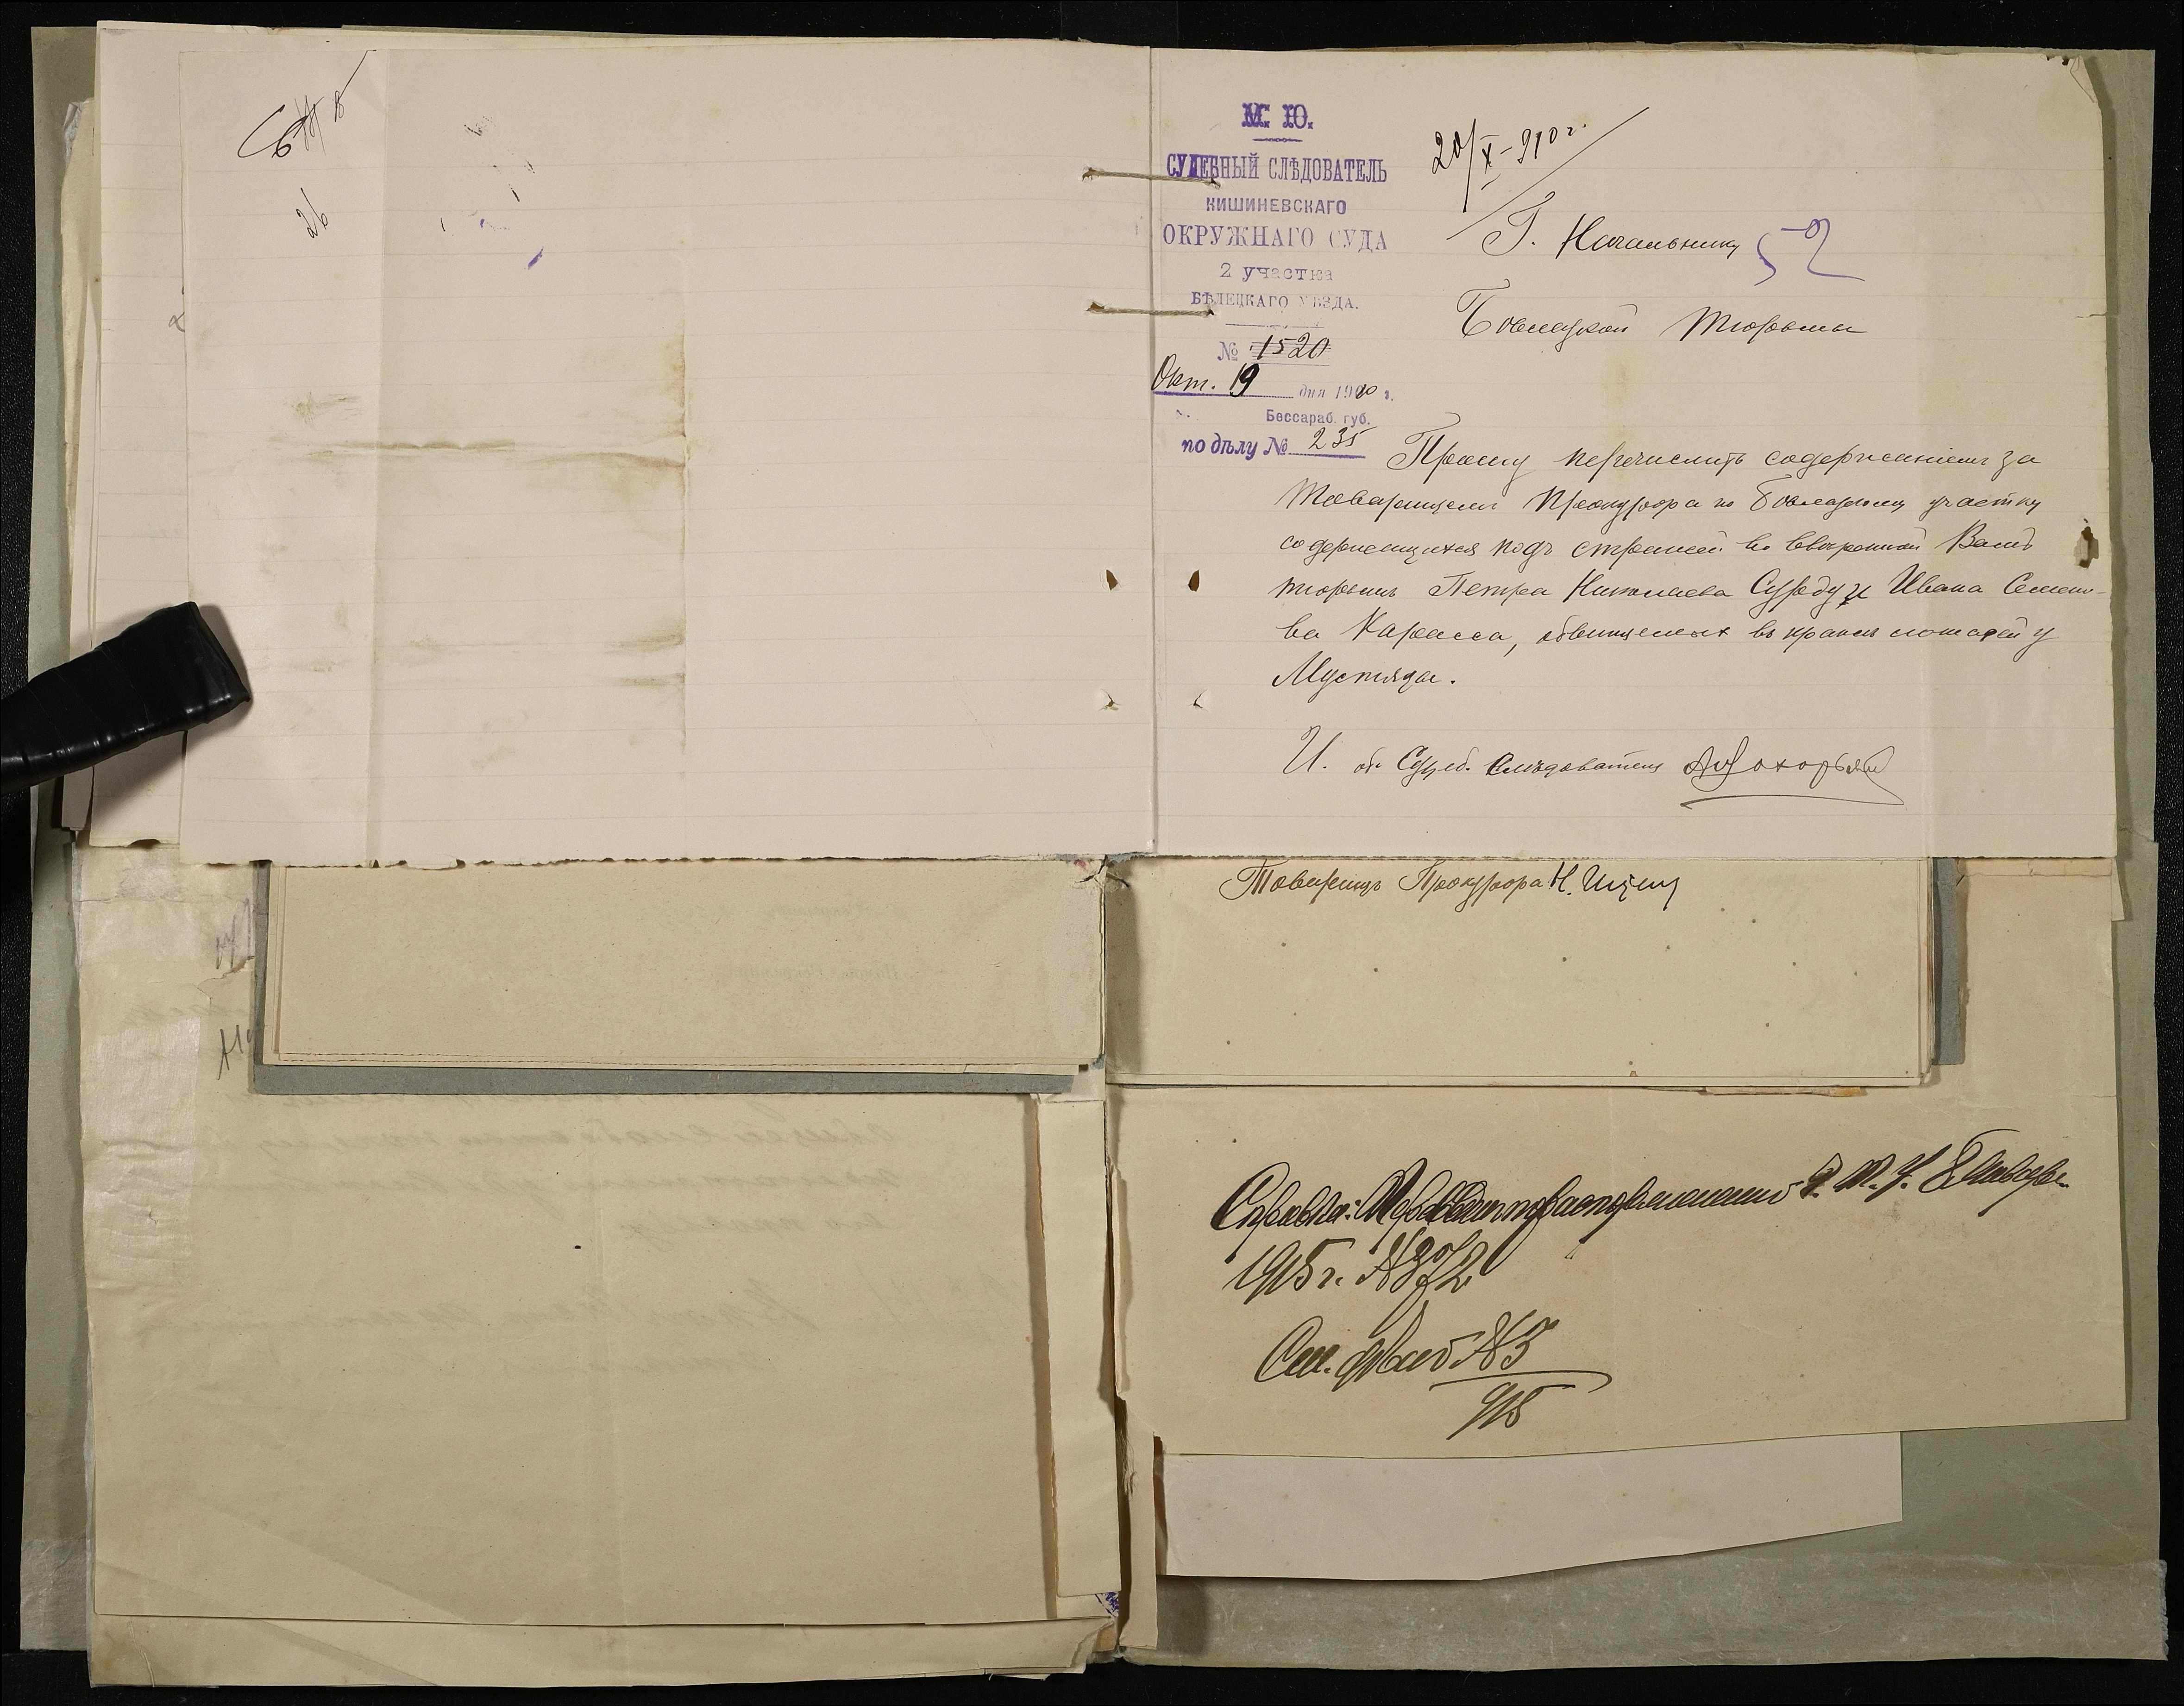 26
М. Ю.
СУДЕБНЫЙ СЛѢДОВАТЕЛЬ
КИШИНЕВСКАГО
ОКРУЖНАГО СУДА
2 участка
БѢЛЕЦКАГО УѢЗДА.
№ 1520
Окт. 19 дня 1910 г.
Бессараб. губ.
по дѣлу № 235
20/X-910 г.
Г. Начальнику
52
Бѣлецкой Тюрьмы
Прошу перечислить содержаніемъ за
Товарищемъ Прокурора по Бѣлецкому участку
содержащихся подъ стражей во ввѣренной Вамъ
тюрьмѣ Петра Николаева и Ивана Семено-
ва Карасса, обвиняемыхъ въ кражѣ лошадей у
Мустяца.
И. об. Судеб. Слѣдователя
Товарищъ Прокурора Н.
Справка:
1915 г. №
См. №3
915